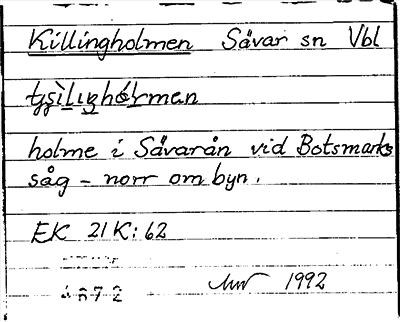 Killingholmen Sävar sn Vbl
holme i Sävarån vid Botsmarks
såg - norr om byn.
EK 21 K: 62
1992